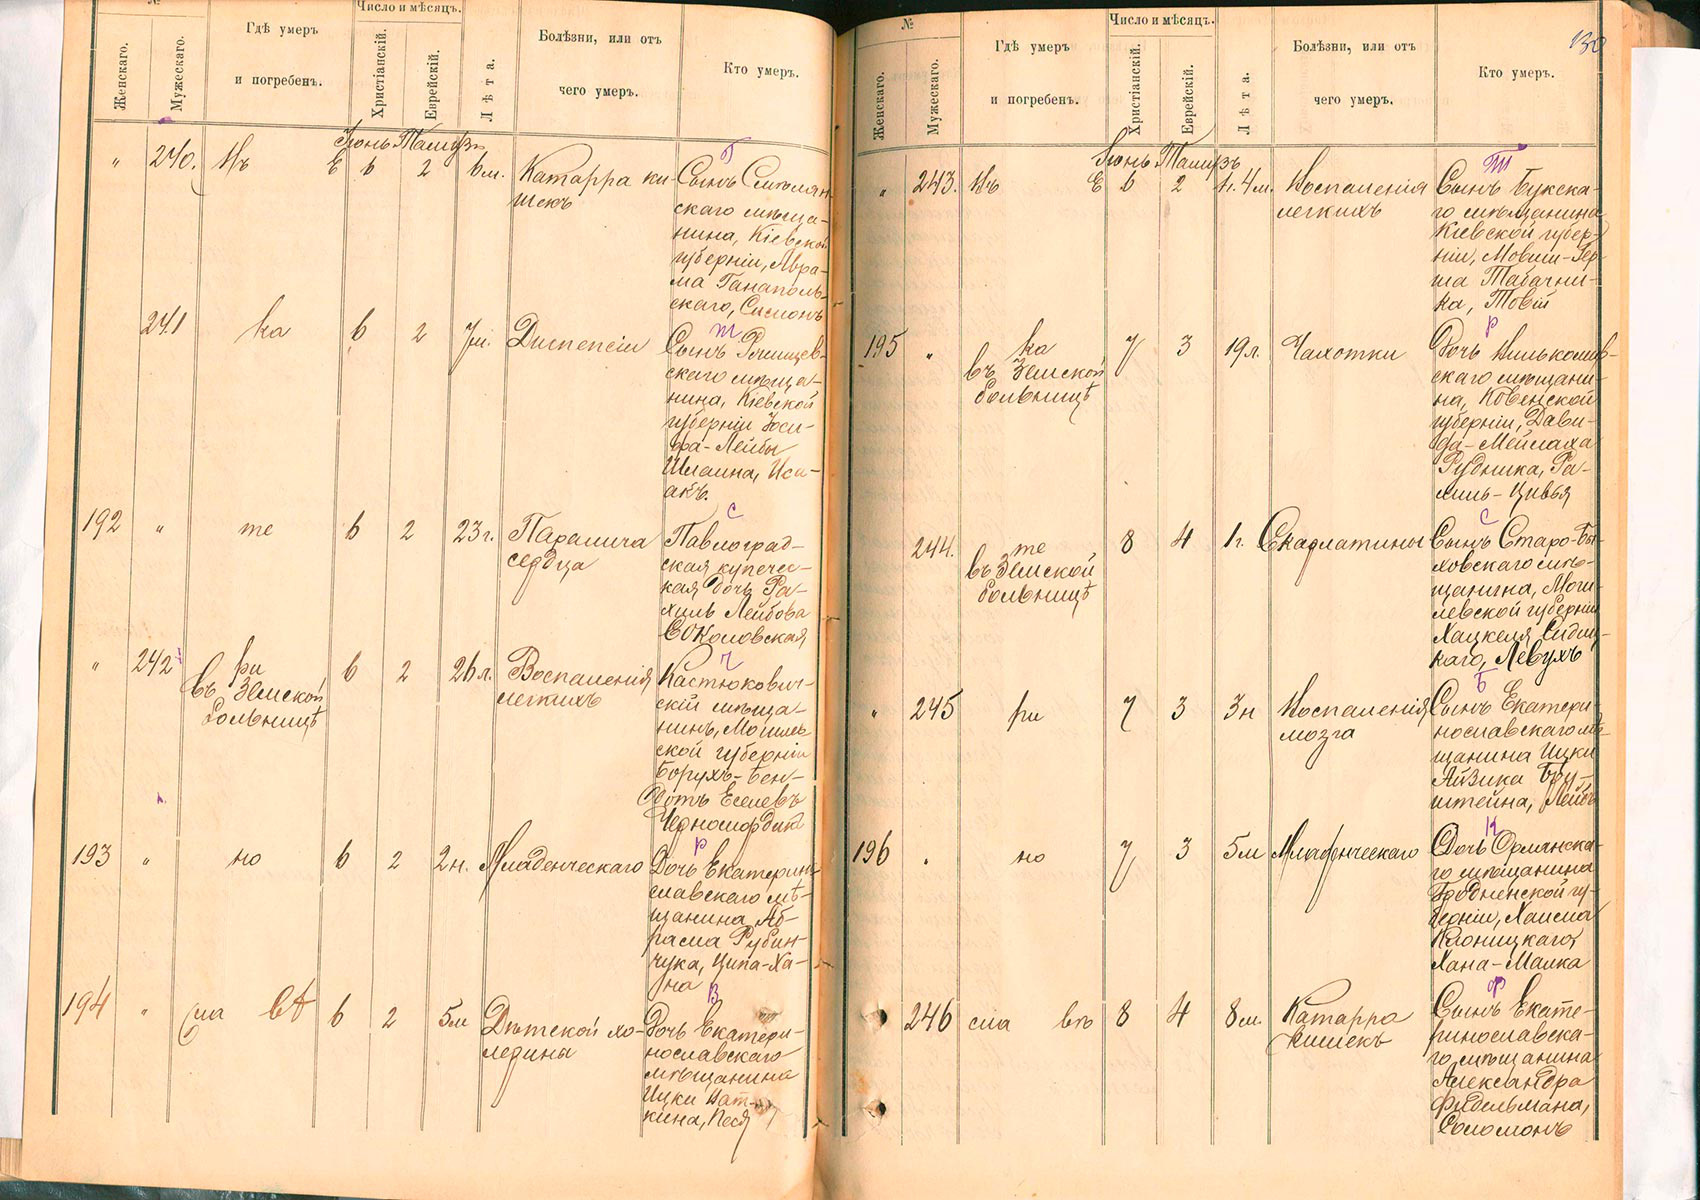 №
Женскаго.
Мужескаго.
Гдѣ умеръ
и погребенъ.
Число и мѣсяцъ.
Христіанскій.
Еврейскій.
Лѣта.
Болѣзни, или отъ
чего умеръ.
Кто умеръ.
Іюнь Тамузъ
Г
" 240. Въ Е 6 2 6 м. Катарра ки-
шекъ
Сынъ Смѣлян-
скаго мѣща-
нина, Кіевской
губерніи, Авра-
ма Ганаполь-
скаго, Симонъ
241 ка 6 2 7 м. Диспепсіи
Сынъ
скаго мѣща-
нина, Кіевской
губерніи Іоси-
фа-Лейбы
Иса-
акъ.
С
192 " те 6 2 23 г. Паралича
сердца
Павлоград-
ская купечес-
кая дочь Ра-
хиль Лейбова
Соколовская
Ч
" 242 ри 6 2 26 л. Воспаленія
въ Земской
больницѣ
легкихъ
Костюкович-
скій мѣща-
нинъ, Могилев-
ской губерніи
Борухъ-Бен-
Еселевъ
Черномордик
Р
193 " но 6 2 2 н. Младенческаго
Дочь Екатерино-
славскаго мѣ-
щанина, Аб-
рама Рубин-
чука, Ципа-Ха-
на
В
194 " сла вѣ 6 2 5 м Дѣтской хо-
лерины
Дочь Екатери-
нославскаго
мѣщанина
Ицки Ват-
кина, Песя
№
Женскаго.
Мужескаго.
Гдѣ умеръ
и погребенъ.
Число и мѣсяцъ.
Христіанскій.
Еврейскій.
Лѣта.
Болѣзни, или отъ
чего умеръ.
Кто умеръ.
130
Іюнь Тамузъ
Т
" 243. Въ Е 6 2 1 г. 4 м. Воспаленія
легкихъ
Сынъ Букска-
го мѣщанина
Кіевской губер-
ніи, Мовши-Гер-
ша Табачни-
ка, Товій
Р
195 " ка 7 3 19 л. Чахотки
въ Земской
больницѣ
Дочь Вилькомир-
скаго мѣщани-
на, Ковенской
губерніи, Дави-
да-Мейлаха
Рудника, Ра-
хиль-Цивья
С
244. те 8 4 1 г. Скарлатины
въ Земской
больницѣ
Сынъ Старо-Бы-
ховскаго мѣ-
щанина, Моги-
левской губерніи
Хацкеля
каго,
Б
" 245 ри 7 3 3 н Воспаленія
мозга
Сынъ Екатери-
нославскаго мѣ-
щанина Ицки
Айзика Бру-
штейна, Лейбъ
К
196 " но 7 3 5 м Младенческаго
Дочь
го мѣщанина
Гродненской гу-
берніи, Хаима
Клоницкаго,
Хана-Малка
Ф
246 сла вѣ 8 4 8 м. Катарра
кишекъ
Сынъ Екате-
ринославска-
го мѣщанина
Александра
Фидельмана,
Соломонъ